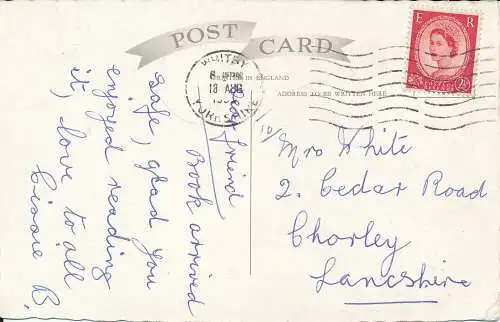 POST CARD
PRINTED IN ENGLAND
ADDRESS TO BE WRITTEN HERE
E R
WHITBY
18 AUG
YORKSHIRE
Dear friend
Book arrived
safe, glad you
enjoyed reading
it, love to all
Cissie B.
Mrs White
2. Cedar Road
Chorley
Lancshire